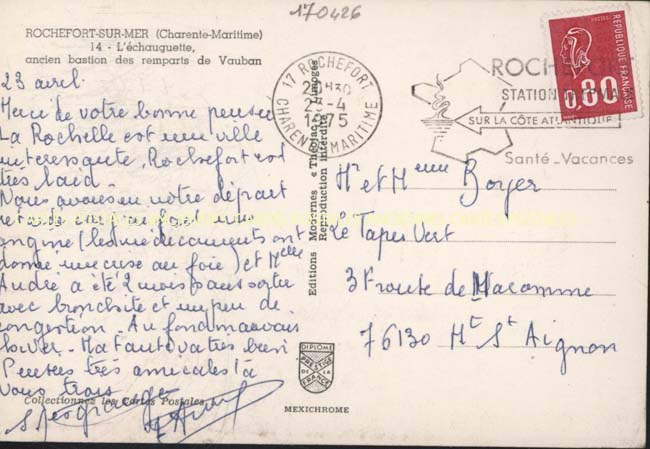 170426
ROCHEFORT-SUR-MER (Charente-Maritime)
14 - L'échauguette,
ancien bastion des remparts de Vauban
23 avril
Merci de votre bonne pensée
La Rochelle est une ville
interessante, Rochefort est
très laid -
Nous avons eu notre départ
retardé car au foie
angine (les médicaments ont
donné une crise au foie) et Melle
André a été 2 mois sans sortir
avec bronchite et un peu de
congestion - Au fond mauvais
hiver - Ma tante va très bien
Pensées très amicales à
Vous trois
Collectionnez les Cartes Postales
17 ROCHEFORT
CHARENTE MARITIME
25-4
1975
ROCHEFORT
STATION THERMALE
SUR LA CÔTE ATLANTIQUE
Santé - Vacances
REPUBLIQUE FRANÇAISE
0,80
Editions Modernes « Théojac » Limoges
Reproduction interdite
Mr et Mme Boyer
Le Tapis Vert
3 route de Maromme
76130 Mt St Aignan
DIPLOME
PRESTIGE
DE LA
FRANCE
MEXICHROME